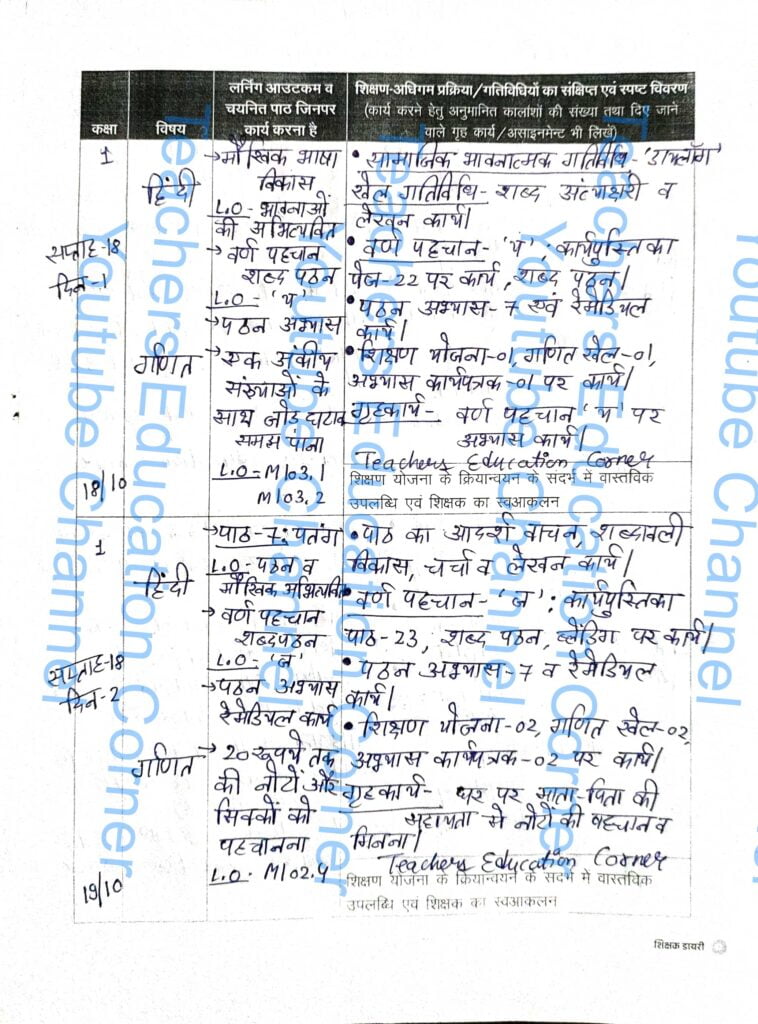 कक्षा
विषय
लर्निंग आउटकम व
चयनित पाठ जिनपर
कार्य करना है
शिक्षण-अधिगम प्रक्रिया/गतिविधियों का संक्षिप्त एवं स्पष्ट विवरण
(कार्य करने हेतु अनुमानित कालांशों की संख्या तथा दिए जाने
वाले गृह कार्य/असाइनमेंट भी लिखें)
1
सप्ताह-18
दिन-1
18/10
हिंदी
गणित
→मौखिक भाषा
विकास
L.O- भावनाओं
की अभिव्यक्ति
→वर्ण पहचान
शब्द पठन
L.O- 'थ'
→पठन अभ्यास
→एक अंकीय
संख्याओं के
साथ जोड़ घटाव
समझ पाना
L.O-M103.1
M103.2
• सामाजिक भावनात्मक गतिविधि-
खेल गतिविधि- शब्द अंत्याक्षरी व
लेखन कार्य।
• वर्ण पहचान- 'थ'; कार्यपुस्तिका
पेज-22 पर कार्य, शब्द पठन।
• पठन अभ्यास-7 एवं रेमेडियल
कार्य।
• शिक्षण योजना-01, गणित खेल-01,
अभ्यास कार्यपत्रक-01 पर कार्य।
गृहकार्य- वर्ण पहचान 'थ' पर
अभ्यास कार्य।
Teachers Education Corner
शिक्षण योजना के क्रियान्वयन के संदर्भ में वास्तविक
उपलब्धि एवं शिक्षक का स्वआकलन
1
सप्ताह-18
दिन-2
19/10
हिंदी
गणित
→पाठ-7: पतंग
L.O-पठन व
मौखिक अभिव्यक्ति
→वर्ण पहचान
शब्दपठन
L.O- 'ज'
→पठन अभ्यास
रेमेडियल कार्य
→20 रूपये तक
की नोटों और
सिक्कों को
पहचानना
L.O- M102.4
• पाठ का आदर्श वाचन, शब्दावली
विकास, चर्चा व लेखन कार्य।
• वर्ण पहचान- 'ज': कार्यपुस्तिका
पाठ-23, शब्द पठन, ब्लेंडिंग पर कार्य।
• पठन अभ्यास-7 व रेमेडियल
कार्य।
• शिक्षण योजना-02, गणित खेल-02,
अभ्यास कार्यपत्रक-02 पर कार्य।
गृहकार्य- घर पर माता-पिता की
सहायता से नोटों की पहचान व
गिनना।
Teachers Education Corner
शिक्षण योजना के क्रियान्वयन के संदर्भ में वास्तविक
उपलब्धि एवं शिक्षक का स्वआकलन
शिक्षक डायरी
Teachers Education Corner
Youtube Channel
Teachers Education Corner
Youtube Channel
Teachers Education Corner
Youtube Channel
Youtube Channel